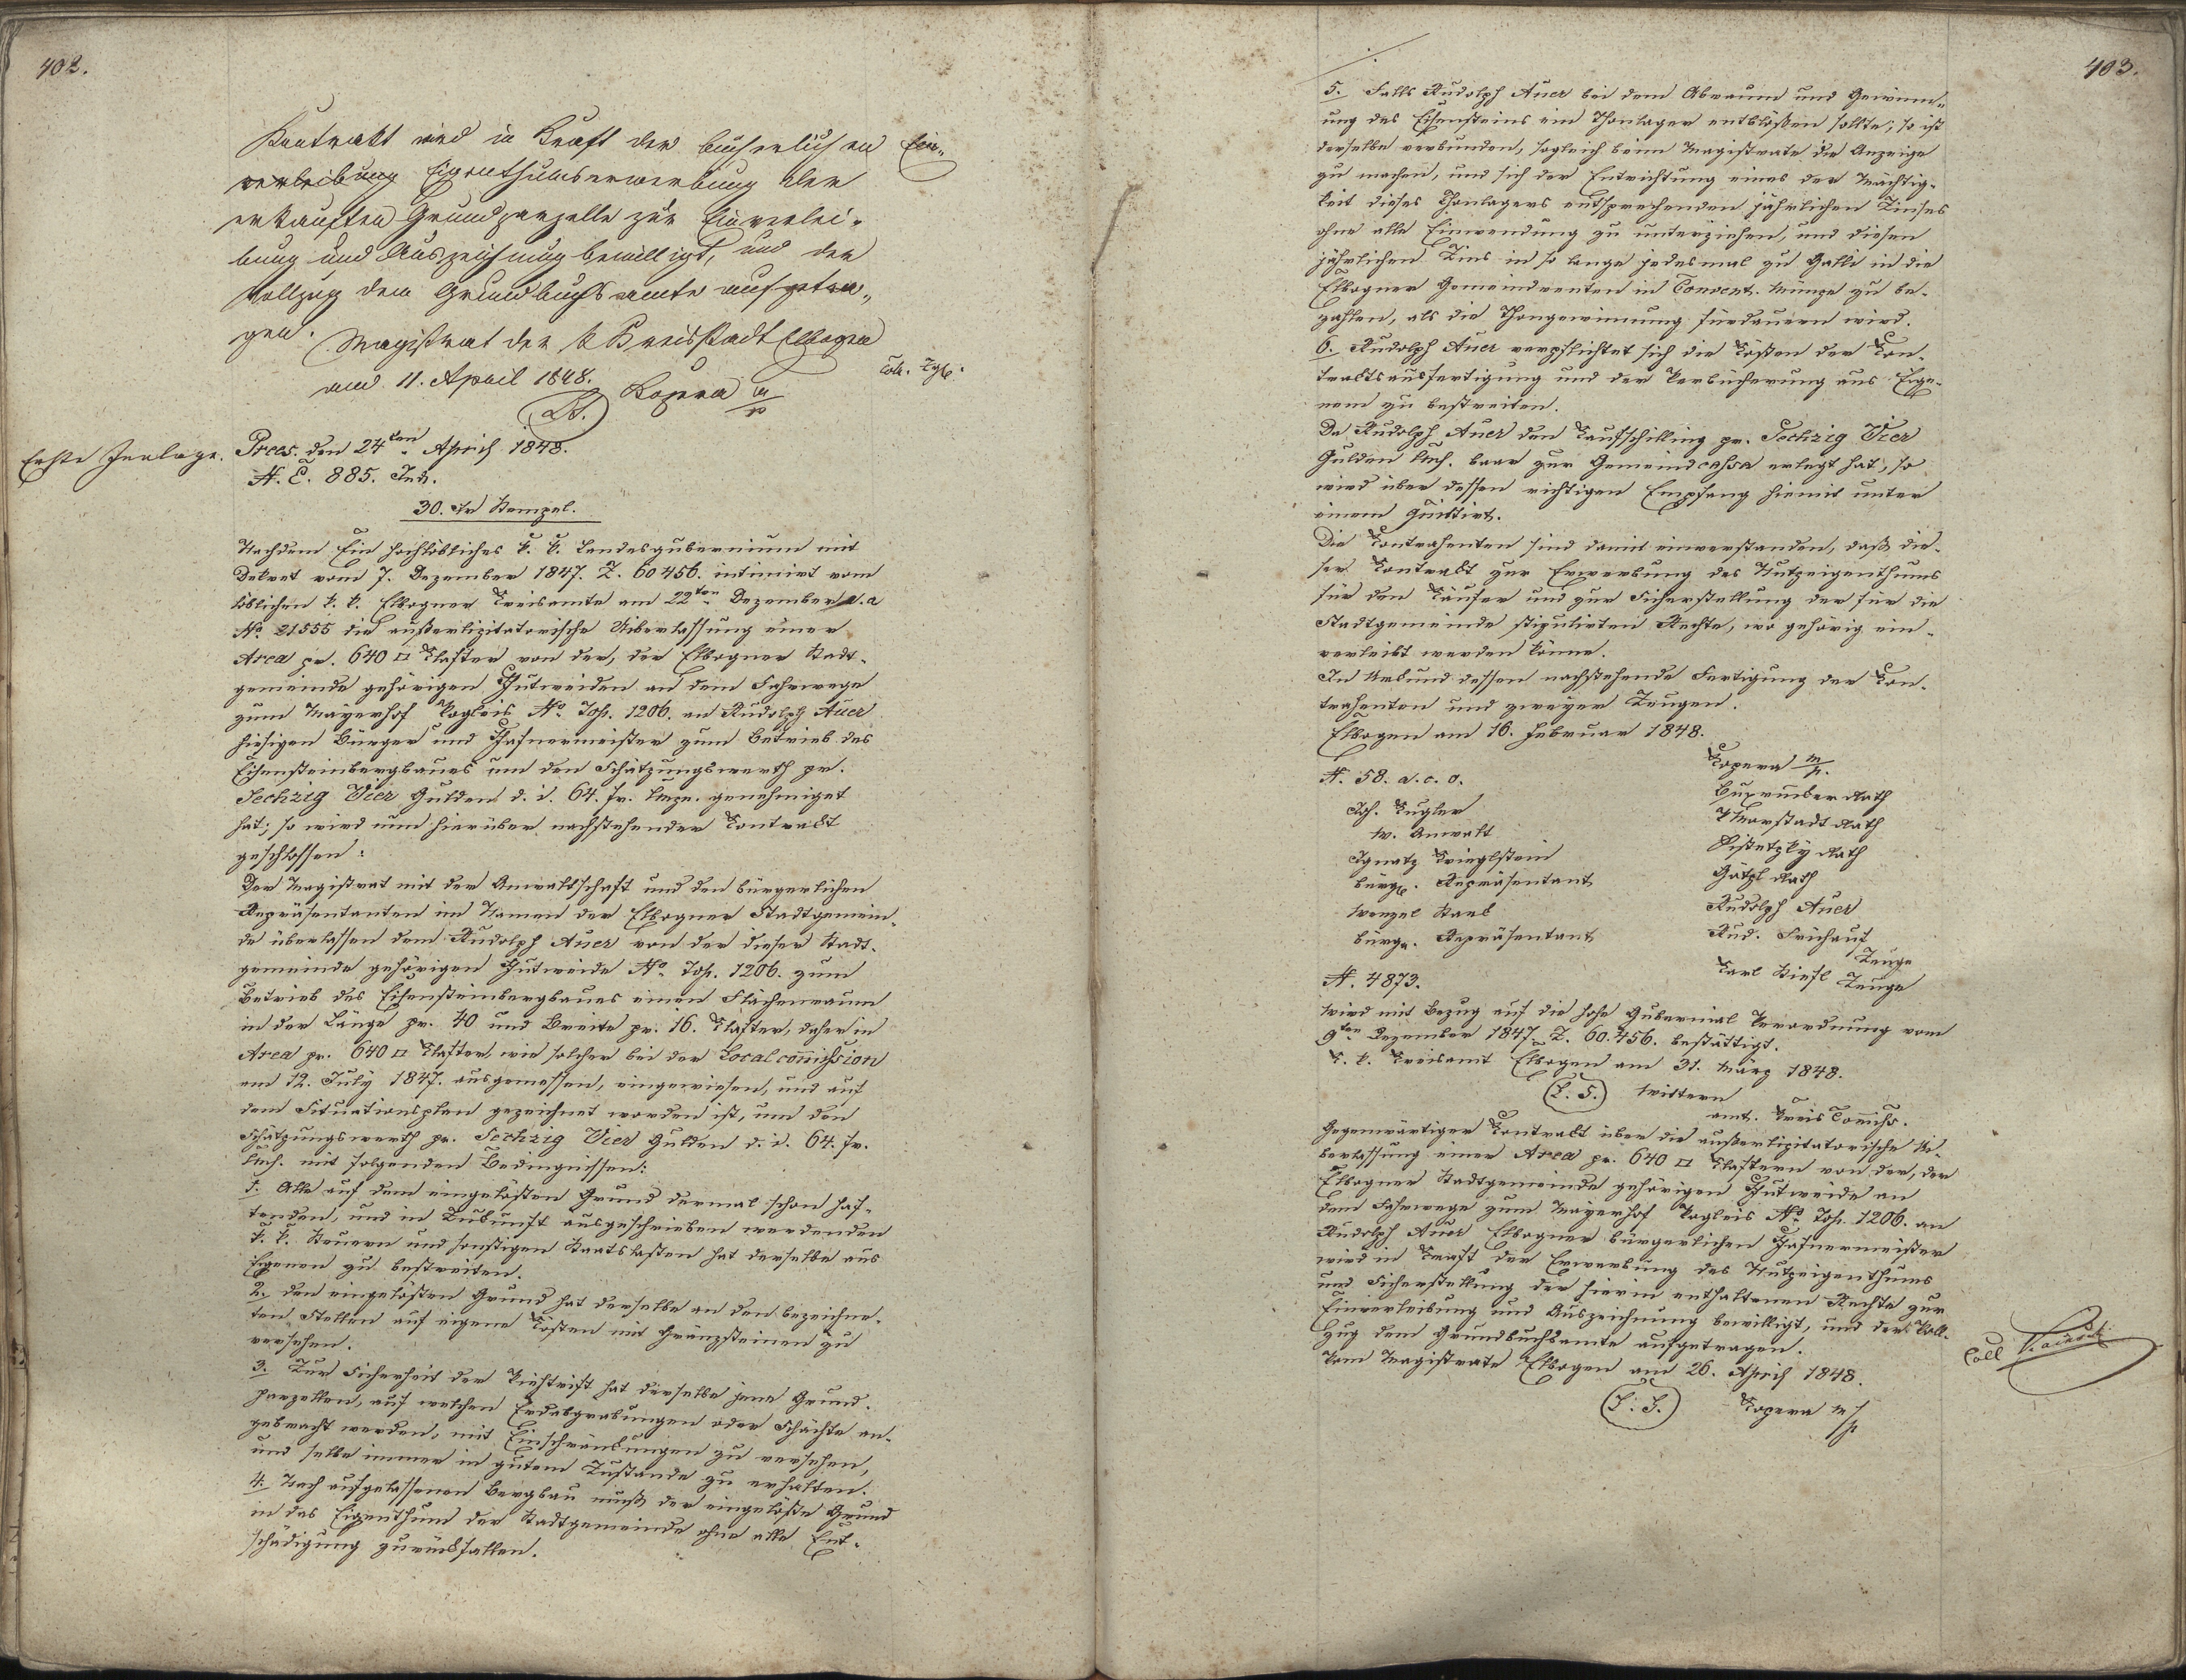 402.
Kontrakt wird in Kraft der bücherlichen Ein-
verleibung Eigenthumserwerbung der
erkauften Grundparzelle zur Einverlei-
bung und Auszeichnung bewilligt, und der
Vollzug dem Grundbuchsamte aufgetra-
gen.
Magistrat der k Kreisstadt Elbogen
am 11. April 1848.
Kopera m/p
Erste Einlage.
Prees. den 24ten April 1848.
N. E. 885. Ind.
30. Xr Stempel.
Nachdem Ein hochlöbliches k. k. Landesgubernium mit
Dekret vom 7. Dezember 1847. Z. 60456. intimirt vom
löblichen k. k. Elbogner Kreisamte am 22ten Dezember d. a
No. 21555 die außerlizitatorische Uiberlassung einer
Area pr. 640 □ Klafter von der, der Elbogner Stadt-
gemeinde gehörigen Hutweiden an dem Fahrwege
zum Mayerhof Pogleis No. Top. 1206. an Rudolph Auer
hiesigen Bürger und Hafnermeister zum Betrieb des
Eisensteinbergbaues um den Schätzungswerth pr.
Sechzig Vier Gulden d. i. 64. fr. kmze. genehmiget
hat; so wird nun hierüber nachstehender Kontrakt
geschlossen:
Der Magistrat mit der Anwaltschaft und den bürgerlichen
Repräsentanten im Namen der Elbogner Stadtgemein-
de überlassen dem Rudolph Auer von der dieser Stadt-
gemeinde gehörigen Hutweide No. Top. 1206. zum
Betrieb des Eisensteinbergbaues einen Flächenraum
in der Länge pr. 40 und Breite pr. 16. Klafter, daher in
Area pr. 640 □ Klafter, wie solcher bei der Localcommission
am 12. July 1847. ausgemessen, eingewiesen, und auf
dem Situationsplan gezeichnet worden ist, um den
Schätzungswerth pr. Sechzig Vier Gulden d. i. 64. fr.
kmh. mit folgenden Bedingnissen:
1. Alle auf dem eingelösten Grund dermal schon haf-
tenden, und in Zukunft ausgeschrieben werdenden
k. k. Steuern und sonstigen Staatslasten hat derselbe aus
Eigenen zu bestreiten.
2. den eingelösten Grund hat derselbe an den bezeichne-
ten Stellen auf eigene Kosten mit Gränzsteinen zu
versehen.
3. Zur Sicherheit der Viehtrift hat derselbe jene Grund-
parzellen, auf welchen Erdabgrabungen oder Schächte an-
gebracht werden, mit Einschränkungen zu versehen,
und selbe immer in gutem Zustande zu erhalten.
4. Nach aufgelassenen Bergbau muß der eingelöste Grund
in das Eigenthum der Stadtgemeinde ohne alle Ent-
schädigung zurückfallen.
403.
5. Falls Rudolph Auer bei dem Abraum und Gewinn-
ung des Eisensteins ein Thonlager entblößen sollte; so ist
derselbe verbunden, sogleich beim Magistrate die Anzeige
zu machen, und sich der Entrichtung eines der Mächtig-
keit dieses Thonlagers entsprechenden jährlichen Zinses
ohne alle Einwendung zu unterziehen, und diesen
jährlichen Zins in so lange jedesmal zu Galli in die
Elbogner Gemeindrenten in Convent. Münze zu be-
zahlen, als die Thongewinnung fürdauern wird.
6. Rudolph Auer verpflichtet sich die Kösten der Kon-
traktsausfertigung und der Verbücherung aus Eige-
nem zu bestreiten.
Da Rudolph Auer den Kaufschilling pr. Sechzig Vier
Gulden kmh. baar zur Gemeindcassa erlegt hat, so
wird über dessen richtigen Empfang hiemit unter
einem quittirt.
Die Kontrahenten sind damit einverstanden, daß die-
ser Kontrakt zur Erwerbung des Nutzeigenthums
für den Käufer und zur Sicherstellung der für die
Stadtgemeinde stipulirten Rechte, wo gehörig ein-
verleibt werden könne.
In Urkund dessen nachstehende Fertigung der Kon-
trahenten und zweyer Zeugen.
Elbogen am 16. Februar 1848.
N. 58. a. c. o.
Joh. Kugler
w. Anwalt
Ignatz Krieglstein
bürgl. Repräsentant
Wenzel Stark
bürgr. Repräsentant
Kopera m/p.
Rath
Rath
Rath
Götzl Rath
Rudolph Auer
Rud. Frühauf
Zeuge
Karl Zeuge
N. 4873.
Wird mit Bezug auf die hohe Gubernial Verordnung vom
9ten Dezember 1847 Z. 60.456. bestättigt.
K. k. Kreisamt Elbogen am 31. März 1848.
L. S.
amt. Kreis Commiß.
Gegenwärtiger Kontrakt über die außerlizitatorische Ui-
berlassung einer Area pr. 640 □ Klaftern von der, der
Elbogner Stadtgemeinde gehörigen Hutweide an
dem Fahrwege zum Mayerhof Pogleis No. Top. 1206. an
Rudolph Auer Elbogner bürgerlichen Hafnermeister
wird in Kraft der Erwerbung des Nutzeigenthums
und Sicherstellung der hierin enthaltenen Rechte zur
Einverleibung und Auszeichnung bewilligt, und der Voll-
zug dem Grundbuchsamte aufgetragen.
Vom Magistrate Elbogen am 26. April 1848.
L. S. Kopera m/p
Coll